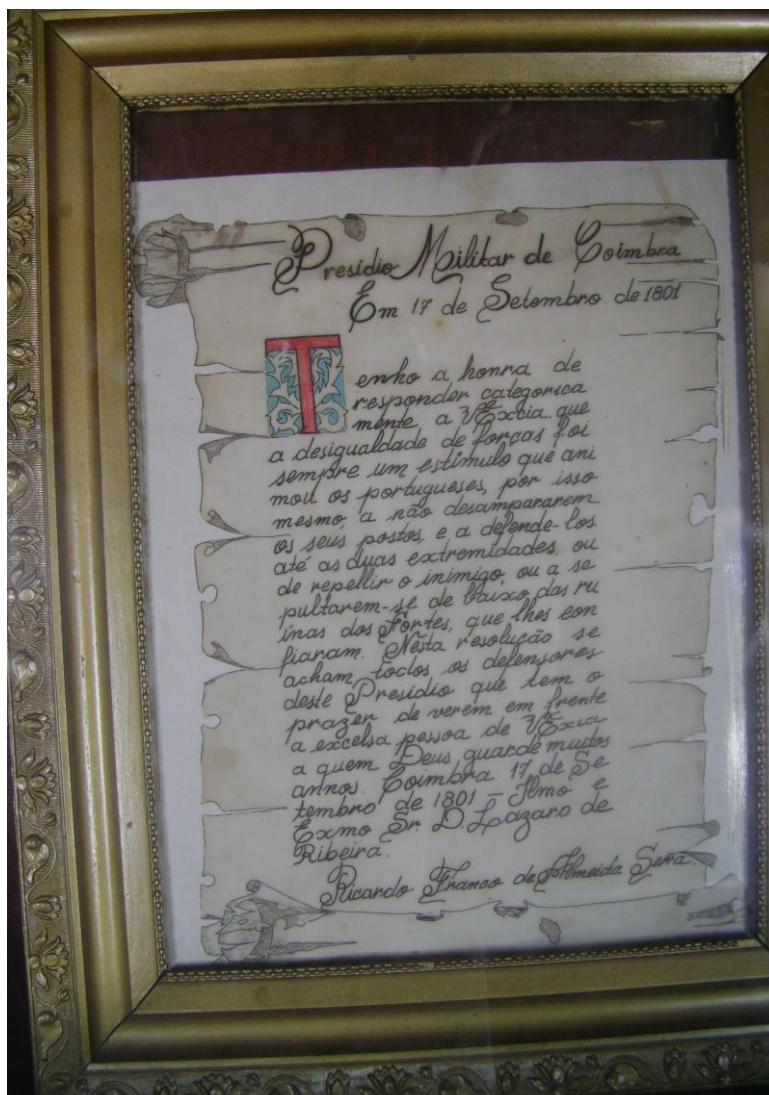 Presídio Militar de Coimbra
Em 17 de Setembro de 1801
Tenho a honra de
responder categorica
mente a VExcia que
a desigualdade de forças foi
sempre um estímulo que ani
mou os portugueses, por isso
mesmo, a não desampararem
os seus postos, e a defende-los
até as duas extremidades, ou
de repellir o inimigo, ou a se
pultarem-se de baixo das ru
ínas dos Fortes, que lhes con
fiaram. Nesta resolução se
acham todos os defensores
deste Presídio que tem o
prazer de verem em frente
a excelsa pessoa de VExcia
a quem Deus guarde muitos
annos. Coimbra 17 de Se
tembro de 1801 - Ilmo e
Exmo Sr. D. Lazaro de
Ribeira.
Ricardo Franco de Almeida Serra.